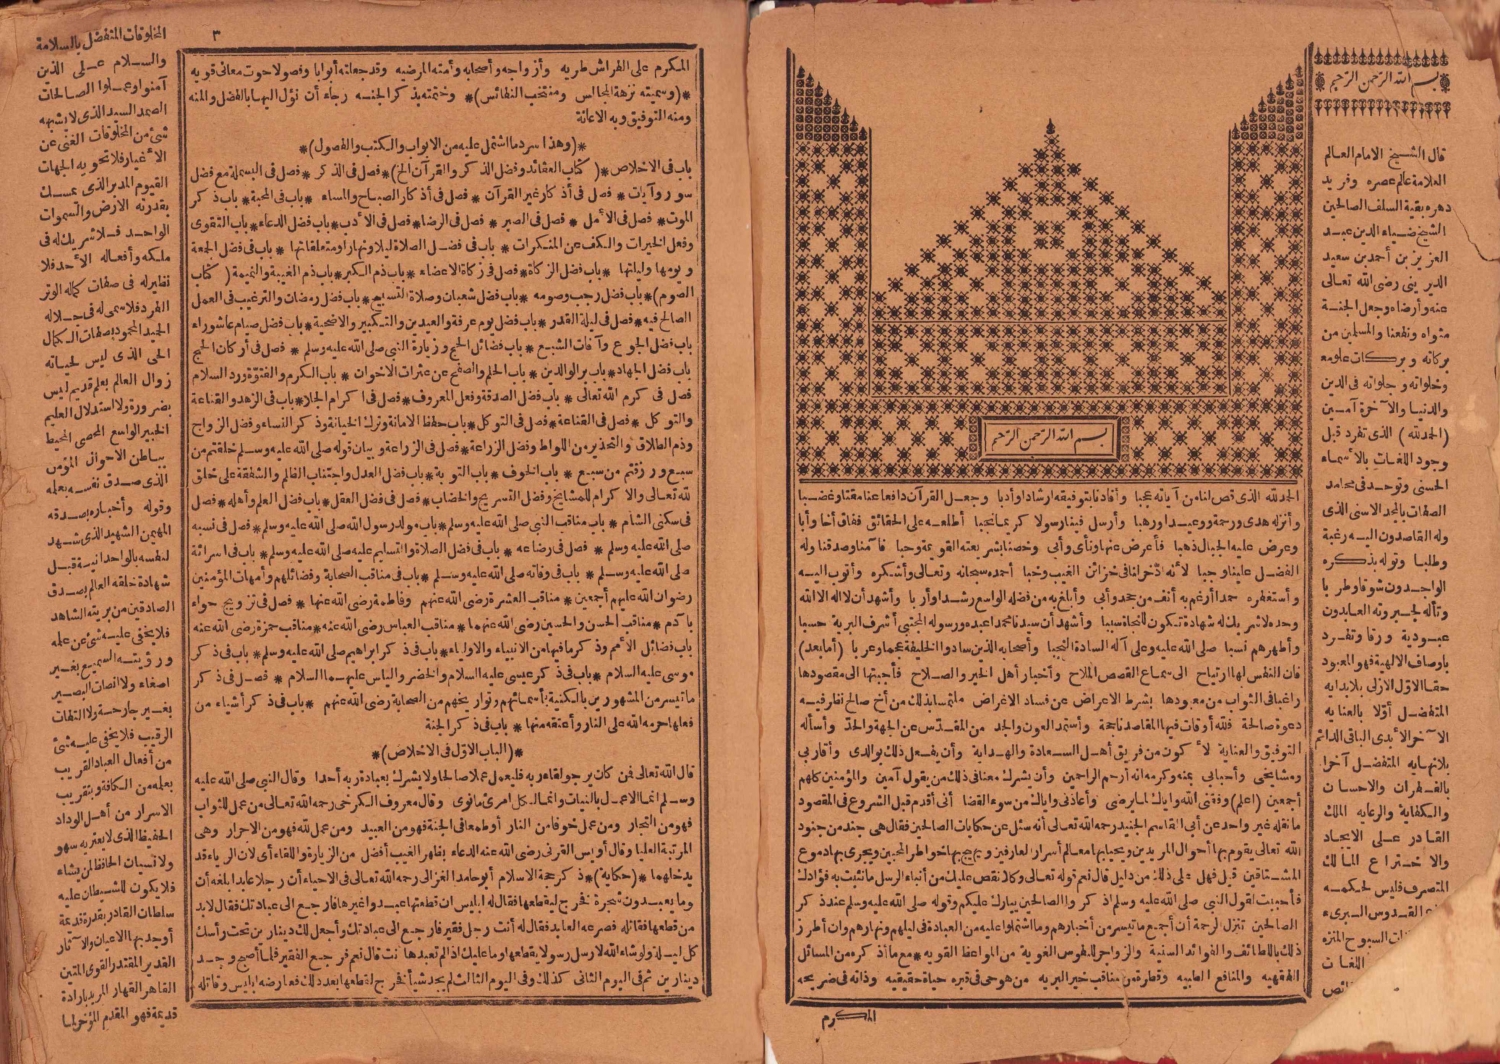 بسم الله الرحمن الرحيم
الحمد لله الذي قص لنا من آياته عجبا وأفادنا بتوفيقه ارشادا وأدبا وجعل القرآن دافعا عنا مقتا وغضبا
وأنزله هدى ورحمة ووعيدا ورهبا وأرسل فينا رسولا كريما نجيبا أطلعه على الحقائق ففاق أخا وأبا
وعرض عليه الجبال ذهبا فأعرض عنها ونأى وأبى وخصنا بشريعته القويمة وحبا فآمنا وصدقنا وله
الفضل علينا وجبا لأنه ادخرنا في خزائن الغيب وخبا أحمده سبحانه وتعالى وأشكره وأتوب اليه
وأستغفره حمدا أرغم به أنف من جحد وأبى وأبلغ به من فضله الواسع رشدا وأربا وأشهد أن لا اله الا الله
وحده لا شريك له شهادة تكون للنجاة سببا وأشهد أن سيدنا محمدا عبده ورسوله المجتبى أشرف البرية حسبا
وأطهرهم نسبا صلى الله عليه وعلى آله السادة النجبا وأصحابه الذين سادوا الخليقة عجما وعربا (أما بعد)
فان النفس لها ارتياح الى سماع القصص الملاح وأخبار أهل الخير والصلاح فأجبتها الى مقصودها
راغبا في الثواب من معبودها بشرط الاعراض عن فساد الاغراض ملتمسا بذلك من أخ صالح نفارفيه
دعوة صالحة فلله أوقات فيها المقاصد ناجحة وأستمد العون والجد من المقدس عن الجهة والحد وأسأله
التوفيق والعناية لأكون من فريق أهل السعادة والهداية وأن يفعل ذلك بوالدي وأقاربي
ومشايخي وأحبابي بمنه وكرمه انه أرحم الراحمين وأن يشرك معنا في ذلك من يقول آمين والمؤمنين كلهم
أجمعين (اعلم) وفقني الله واياك لما يرضى وأعاذني واياك من سوء القضا أني أقدم قبل الشروع في المقصود
ما نقله غير واحد عن أبي القاسم الجنيد رحمه الله تعالى أنه سئل عن حكايات الصالحين فقال هي جند من جنود
الله تعالى يقوم بها أحوال المريدين ويحيا بها معالم أسرار العارفين ويهيج بها خواطر المحبين ويجري بها دموع
المشتاقين قيل فهل على ذلك من دليل قال نعم قوله تعالى وكلا نقص عليك من أنباء الرسل ما نثبت به فؤادك
فأحببت لقول النبي صلى الله عليه وسلم اذكروا الصالحين يبارك عليكم وقوله صلى الله عليه وسلم عند ذكر
الصالحين تنزل الرحمة أن أجمع ما تيسر من أخبارهم وما اشتملوا عليه من العبادة في ليلهم ونهارهم وأن أطرز
ذلك باللطائف والفوائد السنية والزواجر للنفوس الغوية من المواعظ القوية * مع ما أذكره من المسائل
الفقهيه والمنافع الطبيه وقطرة من مناقب خير البريه من هو حي في قبره حياة حقيقيه وذاته في ضريحه
المكرم
بسم الله الرحمن الرحيم
قال الشيخ الامام العالم
العلامة عالم عصره وفريد
دهره بقية السلف الصالحين
الشيخ ضياء الدين عبد
العزيز بن أحمد بن سعيد
الديريني رضي الله تعالى
عنه وأرضاه وجعل الجنة
مثواه ونفعنا والمسلمين من
بركاته وبركات علومه
وخلواته وجلواته في الدين
والدنيا والآخرة آمين
(الحمد لله) الذي تفرد قبل
وجود اللغات بالأسماء
الحسنى وتوحد في محامد
الصفات بالمجد الاسنى الذي
وله القاصدون اليه رغبة
وطلبا وتوله بذكره
الواجدون شوقا وطربا
وتأله لجبروته العابدون
عبودية ورقا وتفرد
باوصاف الالهية فهو المعبود
حقا الاول الازلي بلا بداية
المتفضل أولا بالعنايه
الآخر الأبدي الباقي الدائم
بلا نهايه المتفضل آخرا
بالغفران والاحسان
والكفاية والرعايه الملك
القادر على الايجاد
والاختراع المالك
المتصرف فليس لحكمه
القدوس البريء
السبوح المنزه
اللغات
٣
المكرم على الفراش طريه وأزواجه وأصحابه وأمته المرضيه وقد جعلته أبوابا وفصولا حوت معاني قويه
*(وسميته نزهة المجالس ومنتخب النفائس)* وختمته بذكر الجنسه رجاء أن نؤل اليها بالفضل والمنه
ومنه التوفيق وبه الاعانة
*(وهذا سرد ما اشتمل عليه من الابواب والكتب والفصول)*
باب في الاخلاص *(كتاب العقائد وفضل الذكر والقرآن الخ)* فصل في الذكر * فصل في البسملة مع فضل
سور وآيات * فصل في أذكار غير القرآن * فصل في أذكار الصباح والمساء * باب في المحبة * باب ذكر
الموت * فصل في الأمل * فصل في الصبر * فصل في الرضا * فصل في الأدب * باب فضل الدعاء * باب التقوى
وفعل الخيرات والكف عن المنكرات * باب في فضل الصلاة ليلا ونهارا ومتعلقاتها * باب في فضل الجمعة
ويومها وليلتها * باب فضل الزكاة * فصل في زكاة الاعضاء * باب ذم الكبر * باب ذم الغيبة والنميمة (كتاب
الصوم) * باب فضل رجب وصومه * باب فضل شعبان وصلاة التسبيح * باب فضل رمضان والترغيب في العمل
الصالح فيه * فصل في ليلة القدر * باب فضل يوم عرفة والعيدين والتكبير والاضحية * باب فضل صيام عاشوراء
باب فضل الجوع وآفات الشبع * باب فضائل الحج وزيارة النبي صلى الله عليه وسلم * فصل في أركان الحج
باب فضل الجهاد * باب بر الوالدين * باب الحلم والصفح عن عثرات الاخوان * باب الكرم والفتوة ورد السلام
فصل في كرم الله تعالى * باب فضل الصدقة وفعل المعروف * فصل في اكرام الجار * باب في الزهد والقناعة
والتوكل * فصل في القناعة * فصل في التوكل * باب حفظ الامانة وترك الخيانة وذكر النساء وفضل الزواج
وذم الطلاق والتحذير من اللواط وفضل الزراعة * فصل في الزراعة وبيان قوله صلى الله عليه وسلم خلقتم من
سبع ورزقتم من سبع * باب الخوف * باب التوبة * باب فضل العدل واجتناب الظلم والشفقة على خلق
لله تعالى والاكرام للمشايخ وفضل التسريح والخضاب * فصل في فضل العقل * باب فضل العلم وأهله * فصل
في سكنى الشام * باب مناقب النبي صلى الله عليه وسلم * باب مولد رسول الله صلى الله عليه وسلم * فصل في نسبه
صلى الله عليه وسلم * فصل في رضاعه * باب في فضل الصلاة والتسليم عليه صلى الله عليه وسلم * باب في اسرائه
صلى الله عليه وسلم * باب في وفاته صلى الله عليه وسلم * باب في مناقب الصحابة وفضائلهم وأمهات المؤمنين
رضوان الله عليهم أجمعين * مناقب العشرة رضي الله عنهم وفاطمة رضي الله عنها * فصل في تزويج حواء
بآدم * مناقب الحسن والحسين رضي الله عنهما * مناقب العباس رضي الله عنه * مناقب حمزة رضي الله عنه
باب فضائل الأمم وذكر ما فيها من الانبياء والاولياء * باب في ذكر ابراهيم صلى الله عليه وسلم * باب في ذكر
موسى عليه السلام * باب في ذكر عيسى عليه السلام والخضر والياس عليهما السلام * فصل في ذكر
ما تيسر من المشهورين بالكنية بأسمائهم وتواريخهم من الصحابة رضي الله عنهم * باب في ذكر أشياء من
فعلها حرمه الله على النار وأعتقه منها * باب في ذكر الجنة
*(الباب الاول في الاخلاص)*
قال الله تعالى فمن كان يرجو لقاء ربه فليعمل عملا صالحا ولا يشرك بعبادة ربه أحدا وقال النبي صلى الله عليه
وسلم انما الاعمال بالنيات وانما لكل امرئ ما نوى وقال معروف الكرخي رحمه الله تعالى من عمل للثواب
فهو من التجار ومن عمل خوفا من النار أو طمعا في الجنة فهو من العبيد ومن عمل لله فهو من الاحرار وهي
المرتبة العليا وقال أويس القرني رضي الله عنه الدعاء بظهر الغيب أفضل من الزيارة واللقاء أي لان الرياء قد
يدخلهما *(حكاية)* ذكر حجة الاسلام أبو حامد الغزالي رحمه الله تعالى في الاحياء أن رجلا عابدا بلغه أن
قوما يعبدون شجرة فخرج ليقطعها فقال له ابليس ان قطعتها عبدوا غيرها فارجع الى عبادتك فقال لا بد
من قطعها فقاتله فصرعه العابد فقال له أنت رجل فقير فارجع الى عبادتك وأجعل لك دينارين تحت رأسك
كل ليلة ولو شاء الله لارسل رسولا يقطعها وما عليك اذا لم تعبدها أنت قال نعم فرجع الفقير فلما أصبح وجد
دينارين ثم في اليوم الثاني كذلك وفي اليوم الثالث لم يجد شيأ فخرج لقطعها بعد ذلك فعارضه ابليس وقاتله
المخلوقات المتفضل بالسلامة
والسلام على الذين
آمنوا وعملوا الصالحات
الصمد السيد الذي لا يشبهه
شئ من المخلوقات الغني عن
الأغيار فلا تحويه الجهات
القيوم المدبر الذي يمسك
بقدرته الارض والسموات
الواحد فلا شريك له في
ملكه وأفعاله الأحد فلا
نظير له في صفات كماله الوتر
الفرد فلا سمي له في جلاله
الحميد المحمود بصفات الكمال
الحي الذي ليس لحياته
زوال العالم بعلم قديم ليس
بضرورة ولا استدلال العليم
الخبير الواسع المحصي المحيط
بباطن الاحوال المؤمن
الذي صدق نفسه بعلمه
وقوله وأخباره بصدقه
المهيمن الشهيد الذي شهد
لنفسه بالواحدانية قبل
شهادة خلقه العالم بصدق
الصادقين من بريته الشاهد
فلا يخفى عليه شئ عن علمه
ورؤيته السميع بغير
اصغاء ولا انصات البصير
بغير جارحة ولا التفات
الرقيب فلا يخفى عليه شئ
من أفعال العباد القريب
بعلمه من الكافة وبتقريب
الاسرار من أهل الوداد
الحفيظ الذي لا يعتريه سهو
ولا نسيان الحافظ لمن يشاء
فلا يكون للشيطان عليه
سلطان القادر بقدرة قديمة
أوجد بها الاعيان والآثار
القدير المقتدر القوي المتين
القاهر القهار المريد بارادة
قديمة فهو المقدم المؤخر لما